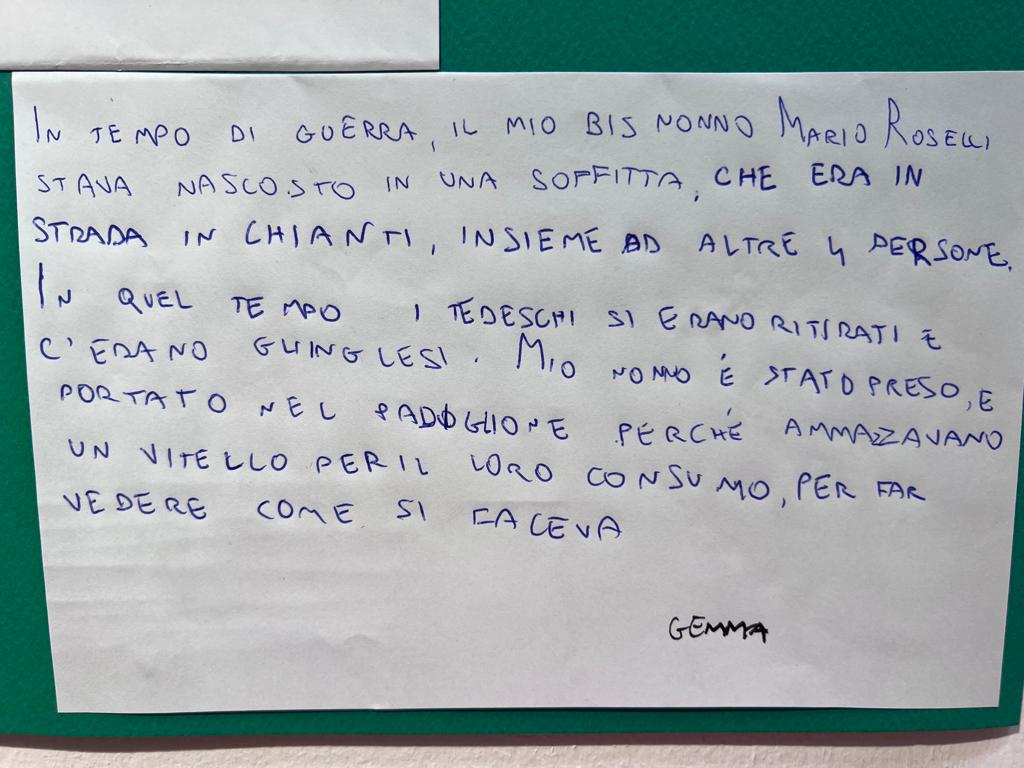 IN TEMPO DI GUERRA, IL MIO BIS NONNO MARIO ROSELLI
STAVA NASCOSTO IN UNA SOFFITTA, CHE ERA IN
STRADA IN CHIANTI, INSIEME AD ALTRE 4 PERSONE.
IN QUEL TEMPO I TEDESCHI SI ERANO RITIRATI E
C'ERANO GLI INGLESI. MIO NONNO É STATO PRESO, E
PORTATO NEL PADIGLIONE PERCHÉ AMMAZZAVANO
UN VITELLO PER IL LORO CONSUMO, PER FAR
VEDERE COME SI FACEVA
GEMMA